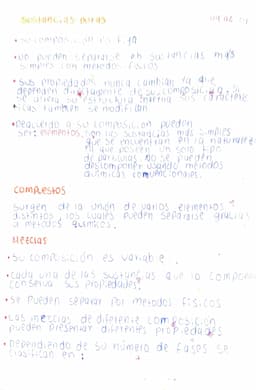 Sustancias puras
• su composición es fija
• no pueden separarse en sustancias más
simples con metodos fisicos
• sus propiedades nunca cambian ya que
dependen directamente de su composición, si
se altera su estructura interna sus caracterí
ticas tambien se modifican
• Deacuerdo a su composicion pueden
ser: elementos, son las sustancias más simples
que se encuentran en la naturaleza
ya que poseen un solo tipo
de particulas, no se pueden
descomponer usando metodos
quimicos convencionales.
COMPUESTOS
surgen de la unión de varios elementos
distintos, los cuales pueden separarse gracias
a metodos quimicos.
Mezclas
• su composición es variable.
• cada una de las sustancias que lo componen
conserva sus propiedades.
• se pueden separar por metodos fisicos
• Las mezclas de diferente composición
pueden presentar diferentes propiedades
• Dependiendo de su número de fases se
clasifican en: